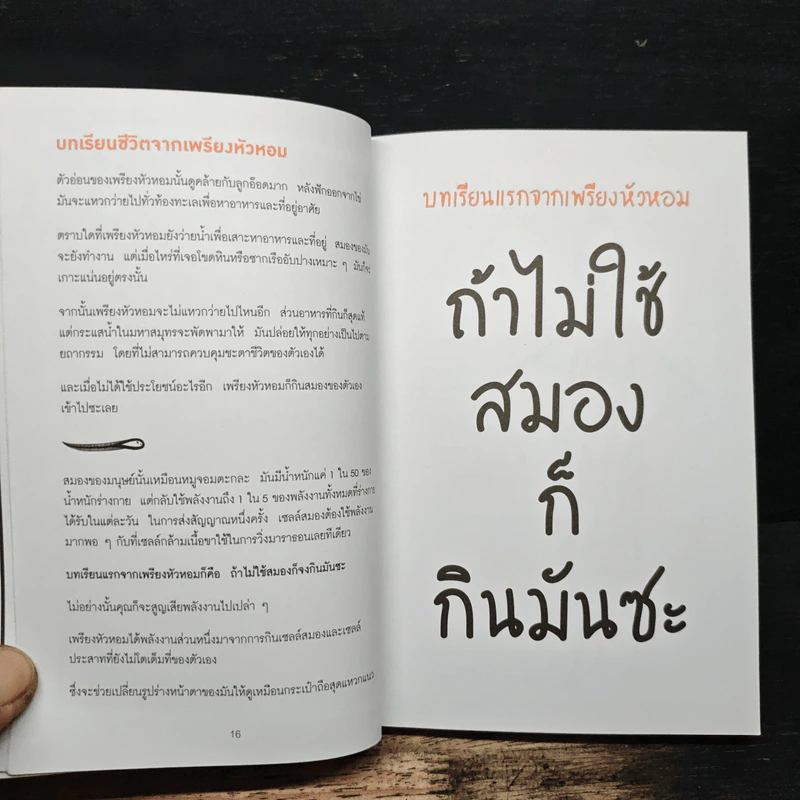 บทเรียนชีวิตจากเพรียงหัวหอม
ตัวอ่อนของเพรียงหัวหอมนั้นดูคล้ายกับลูกอ๊อดมาก หลังฟักออกจากไข่
มันจะแหวกว่ายไปทั่วท้องทะเลเพื่อหาอาหารและที่อยู่อาศัย
ตราบใดที่เพรียงหัวหอมยังว่ายน้ำเพื่อเสาะหาอาหารและที่อยู่ สมองของมัน
จะยังทำงาน แต่เมื่อไหร่ที่เจอโขดหินหรือซากเรืออับปางเหมาะ ๆ มันก็จะ
เกาะแน่นอยู่ตรงนั้น
จากนั้นเพรียงหัวหอมจะไม่แหวกว่ายไปไหนอีก ส่วนอาหารที่กินก็สุดแท้
แต่กระแสน้ำในมหาสมุทรจะพัดพามาให้ มันปล่อยให้ทุกอย่างเป็นไปตาม
ยถากรรม โดยที่ไม่สามารถควบคุมชะตาชีวิตของตัวเองได้
และเมื่อไม่ได้ใช้ประโยชน์อะไรอีก เพรียงหัวหอมก็กินสมองของตัวเอง
เข้าไปซะเลย
สมองของมนุษย์นั้นเหมือนหมูจอมตะกละ มันมีน้ำหนักแค่ 1 ใน 50 ของ
น้ำหนักร่างกาย แต่กลับใช้พลังงานถึง 1 ใน 5 ของพลังงานทั้งหมดที่ร่างกาย
ได้รับในแต่ละวัน ในการส่งสัญญาณหนึ่งครั้ง เซลล์สมองต้องใช้พลังงาน
มากพอ ๆ กับที่เซลล์กล้ามเนื้อขาใช้ในการวิ่งมาราธอนเลยทีเดียว
บทเรียนแรกจากเพรียงหัวหอมก็คือ ถ้าไม่ใช้สมองก็จงกินมันซะ
ไม่อย่างนั้นคุณก็จะสูญเสียพลังงานไปเปล่า ๆ
เพรียงหัวหอมได้พลังงานส่วนหนึ่งมาจากการกินเซลล์สมองและเซลล์
ประสาทที่ยังไม่โตเต็มที่ของตัวเอง
ซึ่งจะช่วยเปลี่ยนรูปร่างหน้าตาของมันให้ดูเหมือนกระเป๋าถือสุดแหวกแนว
16
บทเรียนแรกจากเพรียงหัวหอม
ถ้าไม่ใช้
สมอง
ก็
กินมันซะ